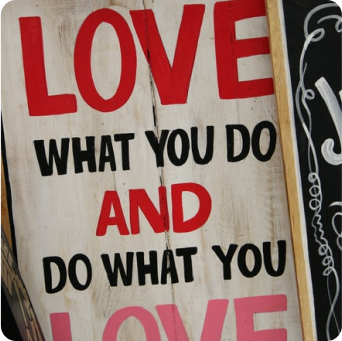 LOVE
WHAT YOU DO
AND
DO WHAT YOU
LOVE